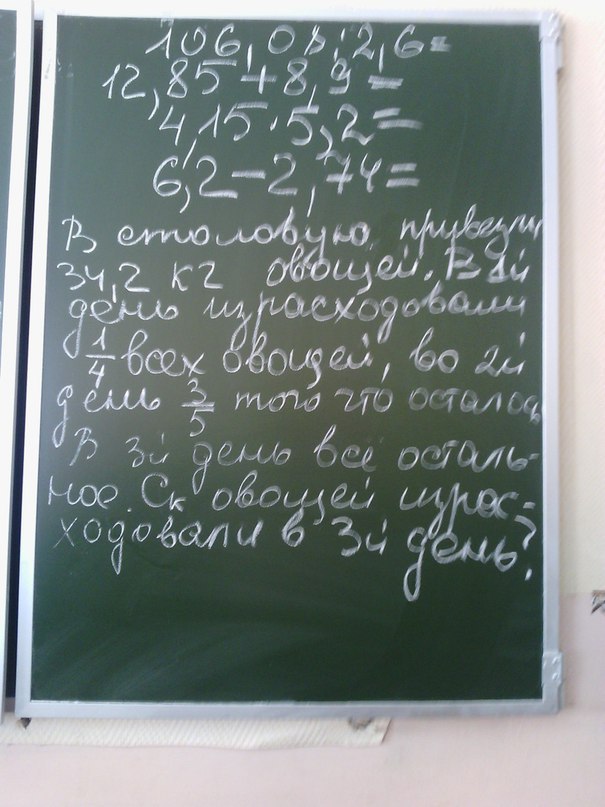 106,08:2,6=
12,85+8,9=
4,15·5,2=
6,2-2,74=
В столовую привезли
34,2 кг овощей. В 1й
день израсходовали
1/4 всех овощей, во 2й
день 3/5 того что осталось
В 3й день всё осталь-
ное. Ск овощей израс-
ходовали в 3й день?